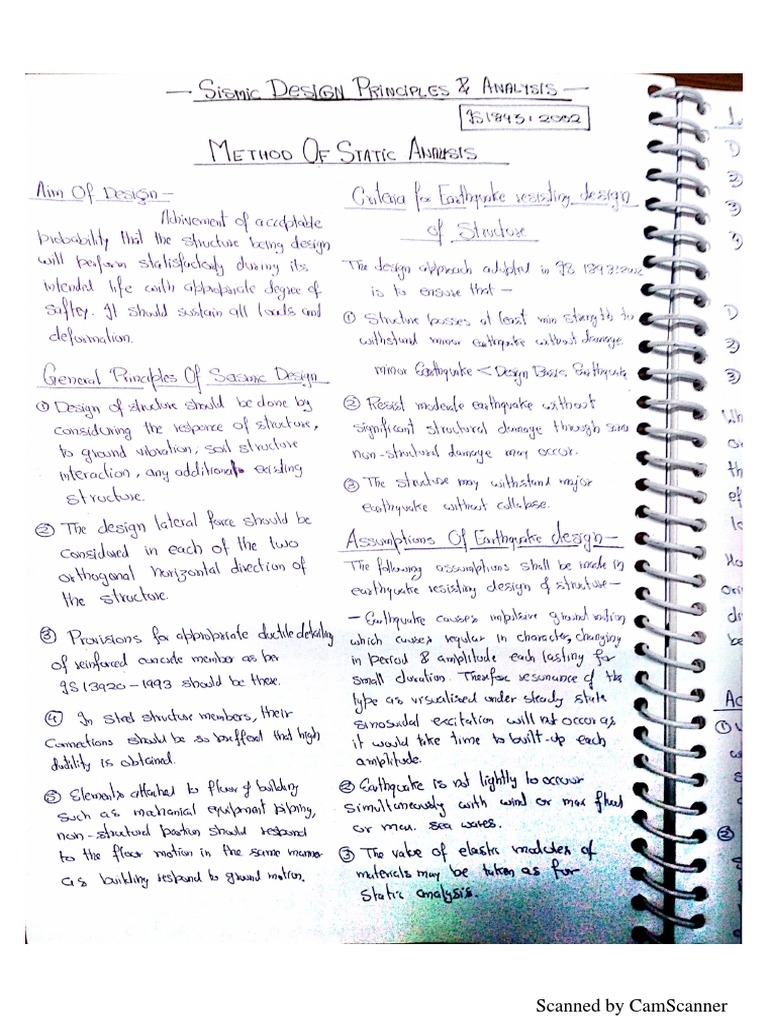 — Sismic Design Principles & Analysis —
IS 1893:2002
Method Of Static Analysis
Aim Of Design —
Achivement of acceptable
probability that the structure being design
will perform statisfactorly during its
intended life with appropriate degree of
saftey. It should sustain all loads and
deformation.
General Principles Of Seismic Design
① Design of structure should be done by
considuring the responce of structure,
to ground vibration, soil structure
interaction, any additional existing
structure.
② The design lateral force should be
considured in each of the two
orthogonal horizontal direction of
the structure.
③ Provisions for appropriate ductile detailing
of reinforced concrete member as per
IS 13920-1993 should be there.
④ In steel structure members, their
Connections should be so that high
ductility is obtained.
⑤ Elements attached to floor of building
such as mechanial equipment piping,
non-structural portion should respond
to the floor motion in the same manner
as building respond to ground motion.
Criteria for Earthquake resisting design
of Structure
The design approach adopted in IS 1893:2002
is to ensure that —
① Structure posses at least min strength to
withstand minor earthquake without damage.
minor Earthquake < Design Basis Earthquake
② Resist moderate earthquake without
significant structural damage through some
non-structural damage may occur.
③ The structure may withstand major
earthquake without collapse.
Assumptions Of Earthquake design —
The following assumptions shall be made in
earthquake resisting design of structure —
— Earthquake causes impulsive ground motion
which causes regular in character, changing
in period & amplitude each lasting for
small duration. Therefore resonance of the
type as visualised under steady state
sinosuidal excitation will not occur as
it would take time to built-up each
amplitude.
② Earthquake is not lightly to occur
simultaneously with wind or max flud
or max. sea waves.
③ The value of elastic modules of
materials may be taken as for
Static analysis.
Scanned by CamScanner